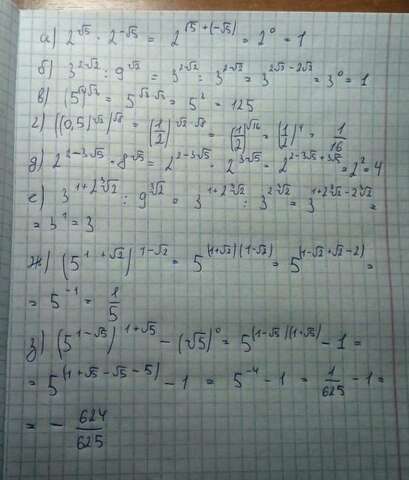 а) 2^√5 · 2^-√5 = 2^√5+(-√5) = 2^0 = 1
б) 3^2√2 : 9^√2 = 3^2√2 : 3^2√2 = 3^2√2-2√2 = 3^0 = 1
в) (5^√3)^√3 = 5^√3·√3 = 5^3 = 125
г) ((0,5)^√2)^√8 = (1/2)^√2·√8 = (1/2)^√16 = (1/2)^4 = 1/16
д) 2^2-3√5 · 8^√5 = 2^2-3√5 · 2^3√5 = 2^2-3√5+3√5 = 2^2 = 4
е) 3^1+2∛2 : 9^∛2 = 3^1+2∛2 : 3^2∛2 = 3^1+2∛2-2∛2 =
= 3^1 = 3
ж) (5^1+√2)^1-√2 = 5^(1+√2)(1-√2) = 5^(1-√2+√2-2) =
= 5^-1 = 1/5
з) (5^1-√5)^1+√5 - (√5)^0 = 5^(1-√5)(1+√5) - 1 =
= 5^(1+√5-√5-5) - 1 = 5^-4 - 1 = 1/625 - 1 =
= - 624/625